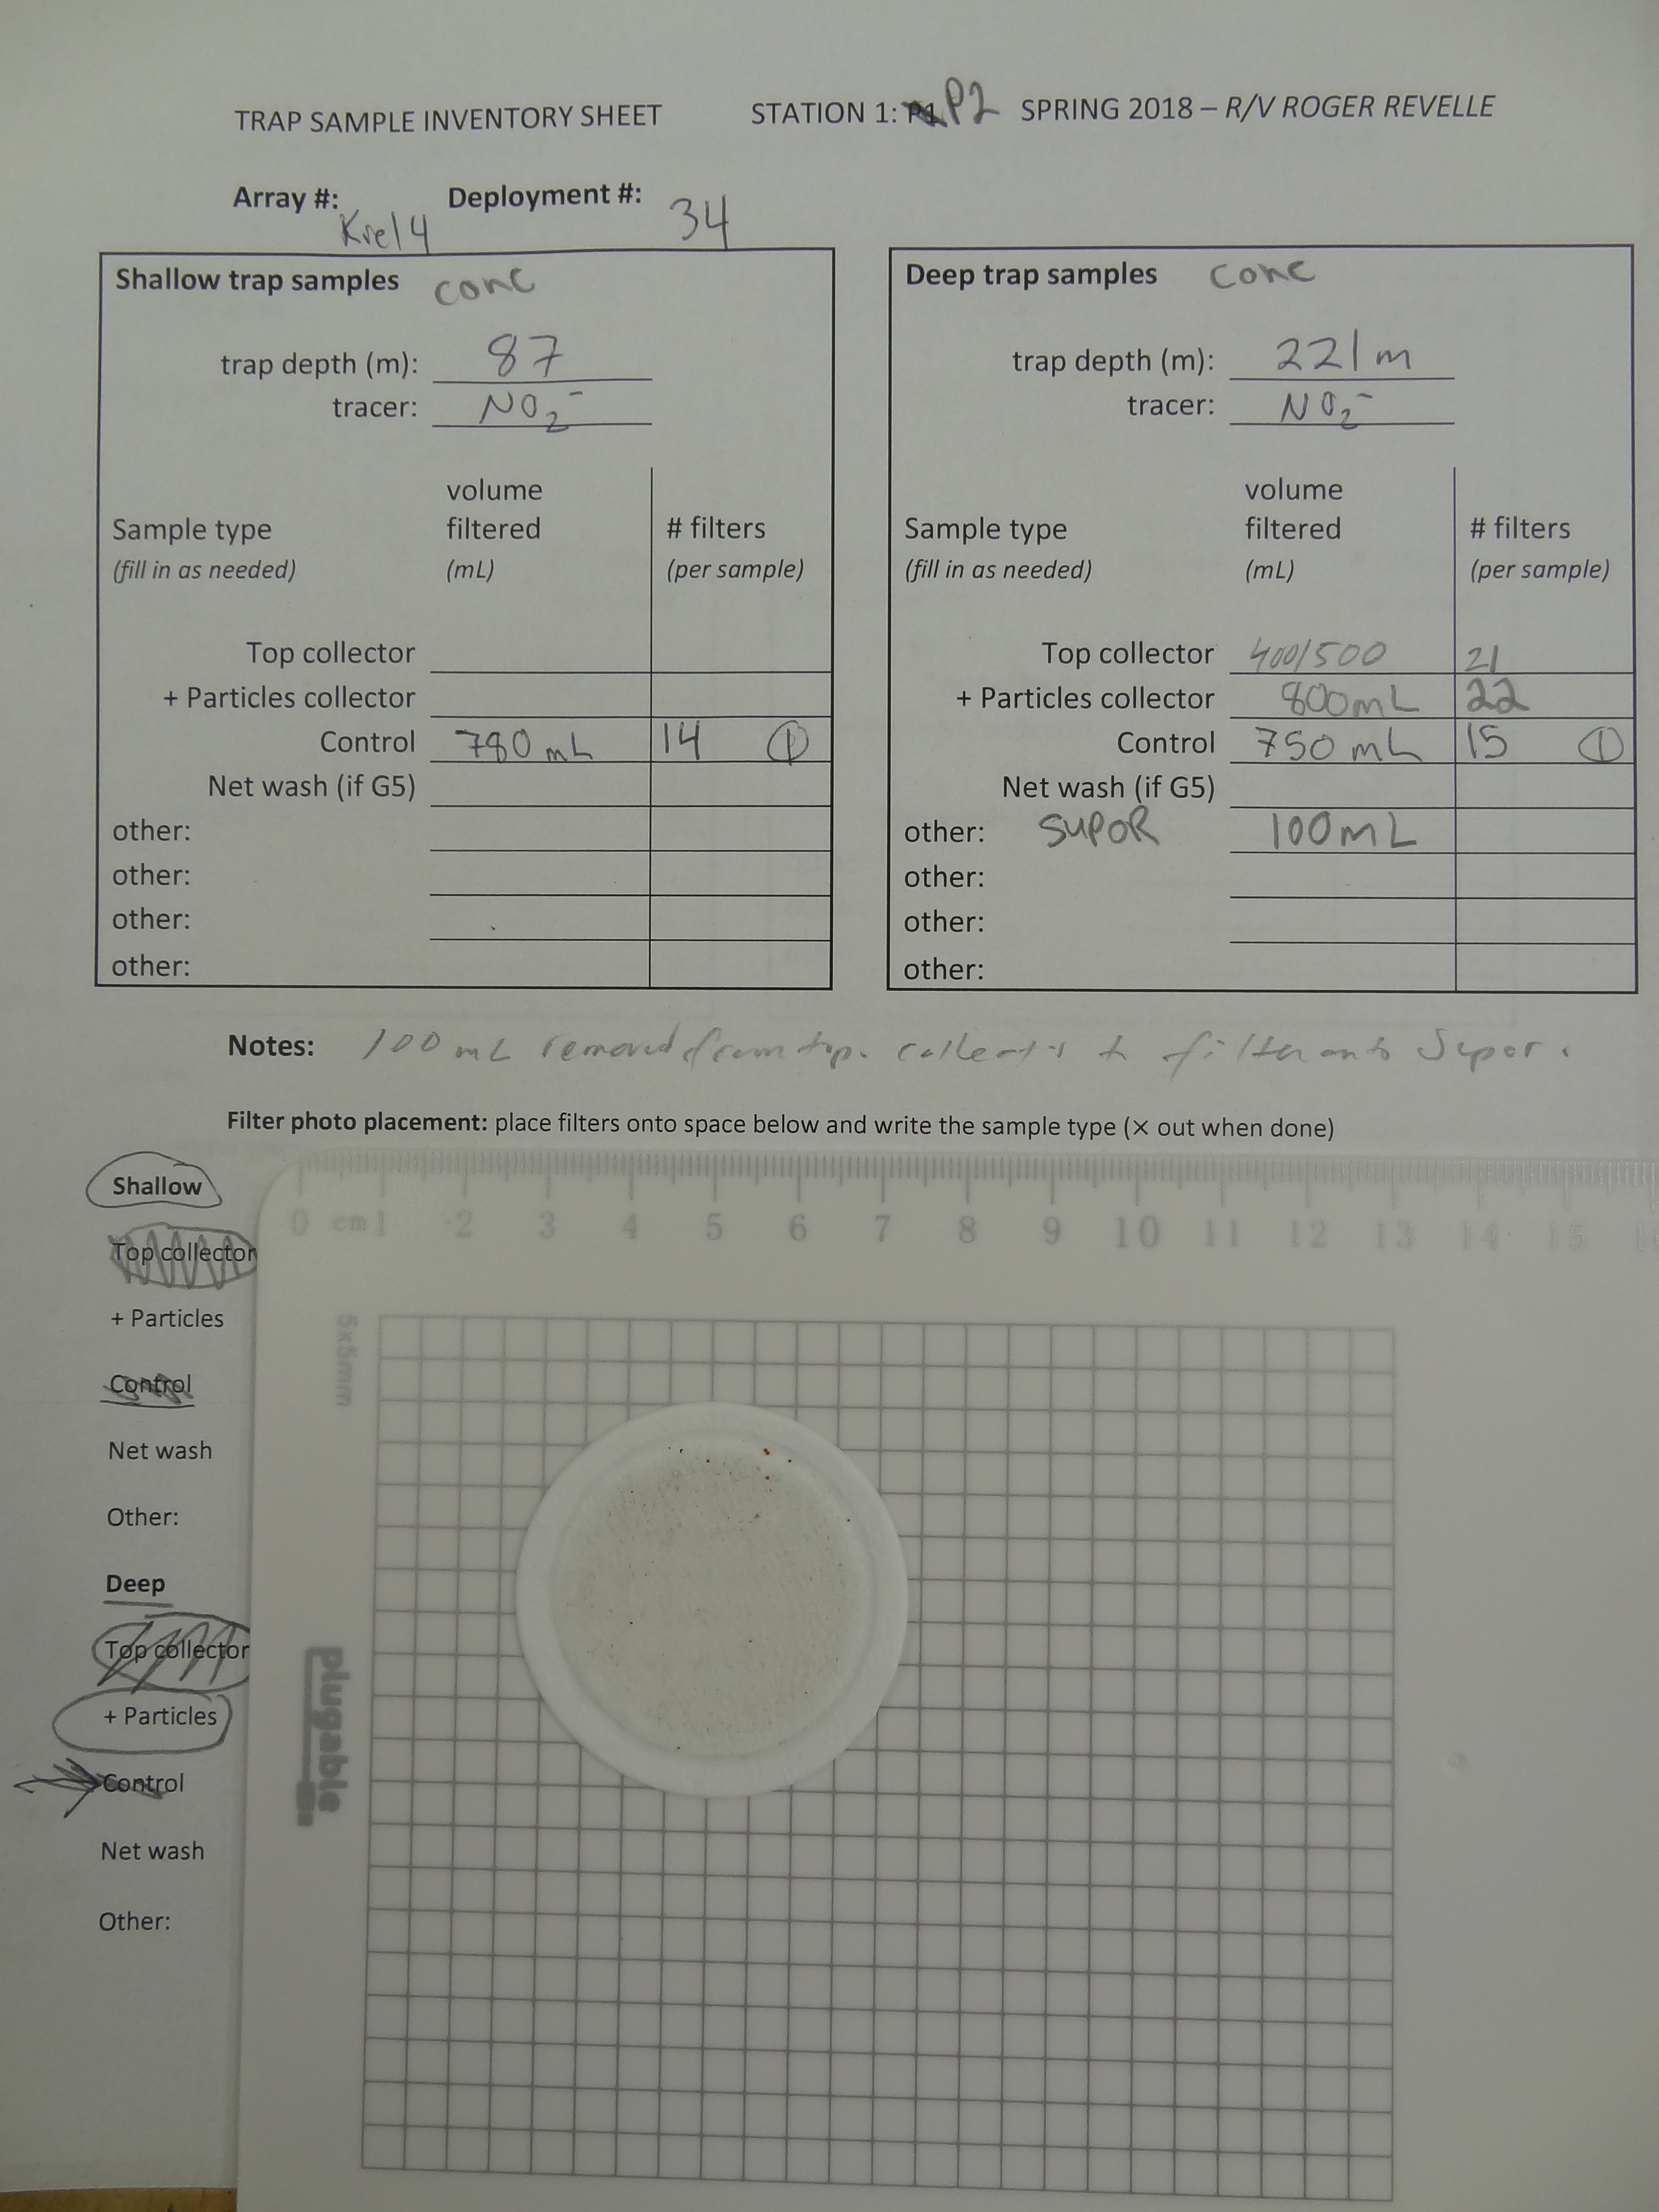 TRAP SAMPLE INVENTORY SHEET STATION 1: P1 P2 SPRING 2018 – R/V ROGER REVELLE
Array #: Deployment #:
Krel4 34
Shallow trap samples conc
trap depth (m): 87
tracer: NO2-
volume
Sample type filtered # filters
(fill in as needed) (mL) (per sample)
Top collector
+ Particles collector
Control 780 mL 14 1
Net wash (if G5)
other:
other:
other:
other:
Deep trap samples conc
trap depth (m): 221m
tracer: NO2-
volume
Sample type filtered # filters
(fill in as needed) (mL) (per sample)
Top collector 400/500 21
+ Particles collector 800mL 22
Control 750 mL 15 1
Net wash (if G5)
other: SUPOR 100mL
other:
other:
other:
Notes: 100 mL removed from top collectors to filter onto Supor.
Filter photo placement: place filters onto space below and write the sample type (× out when done)
Shallow
Top collector
+ Particles
Control
Net wash
Other:
Deep
Top collector
+ Particles
Control
Net wash
Other:
0 cm 1 2 3 4 5 6 7 8 9 10 11 12 13 14 15
5x5mm
plugable